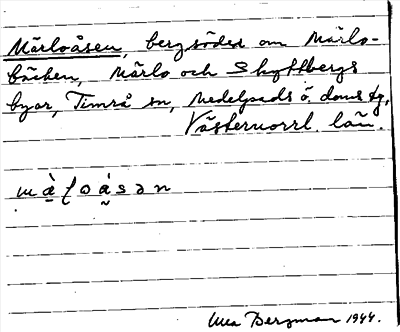 Märloåsen, berg söder om Märlo-
bäcken, Märlo och Skyttbergs
byar, Timrå sn, Medelpads ö. doms. tg,
Västernorrl. län.
Bergman 1944.